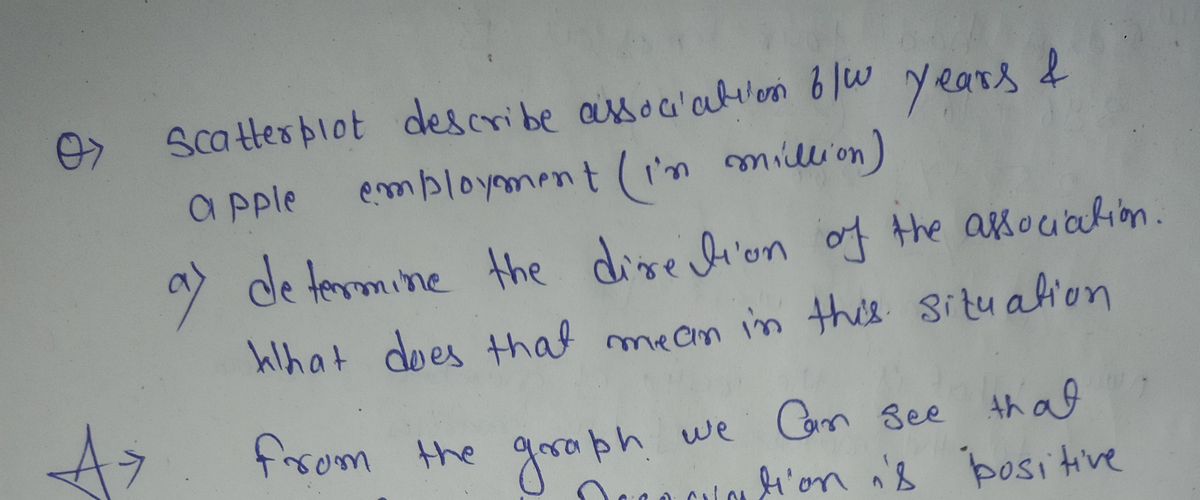 Q> Scatterplot describe association b/w years &
apple employment (in million)
a) determine the direction of the association.
What does that mean in this situation
A→ from the graph we can see that
is positive